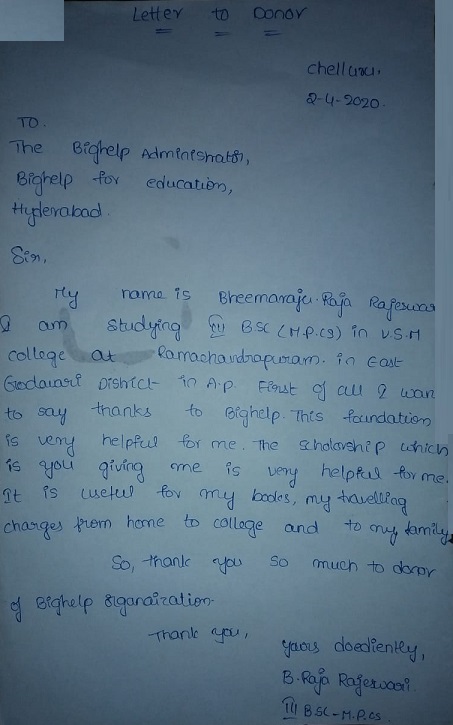 Letter to Donor
chelluru.
2-4-2020.
TO.
The Bighelp Administrator,
Bighelp for education,
Hyderabad.
Sir,
My name is Bheemaraju. Raja Rajeswar
I am studying III BSC (M.P.CS) in V.S.M
college at Ramachandrapuram. in East
Godavari District in A.P. First of all I wan
to say thanks to Bighelp. This foundation
is very helpful for me. The scholarship which
is you giving me is very helpful for me.
It is useful for my books, my travelling
charges from home to college and to my family.
So, thank you so much to donor
of Bighelp organaization.
Thank you,
yours doediently,
B. Raja Rajeswari.
III BSC-M.P.CS